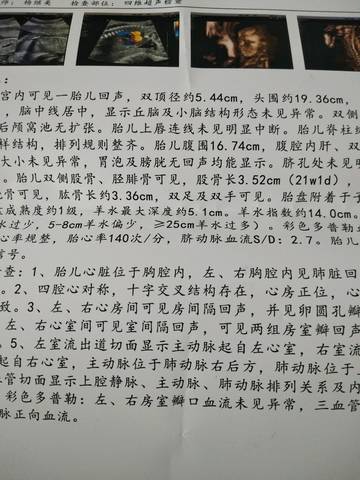 师：杨继美 检查部位：四维超声检查
：
宫内可见一胎儿回声，双顶径约5.44cm，头围约19.36cm，
，脑中线居中，显示丘脑及小脑结构形态未见异常。双侧
后颅窝池无扩张。胎儿上唇连线未见明显中断。胎儿脊柱
样结构，排列规则整齐。胎儿腹围16.74cm，腹腔内肝、双
大小未见异常，胃泡及膀胱无回声均能显示。脐孔处未见明
胎儿双侧股骨、胫腓骨可见，股骨长3.52cm（21w1d），
骨可见，肱骨长约3.36cm，双足及双手可见。胎盘附着于子
成熟度约1级，羊水最大深度约5.1cm。羊水指数约14.0cm。
水过少，5-8cm羊水偏少，≥25cm羊水过多）。彩色多普勒
心率规整，胎心率140次/分，脐动脉血流S/D：2.7。胎儿
信号。
查：1、胎儿心脏位于胸腔内，左、右胸腔内见肺脏回
。2、四腔心对称，十字交叉结构存在，心房正位，心
致。3、左、右心房间可见房间隔回声，并见卵圆孔瓣
、左、右心室间可见室间隔回声，可见两组房室瓣回声
。5、左室流出道切面显示主动脉起自左心室，右室流
起自右心室，主动脉位于肺动脉右后方，肺动脉位于主
管切面显示上腔静脉、主动脉、肺动脉排列关系及内
彩色多普勒：左、右房室瓣口血流未见异常，三血管
脉正向血流。